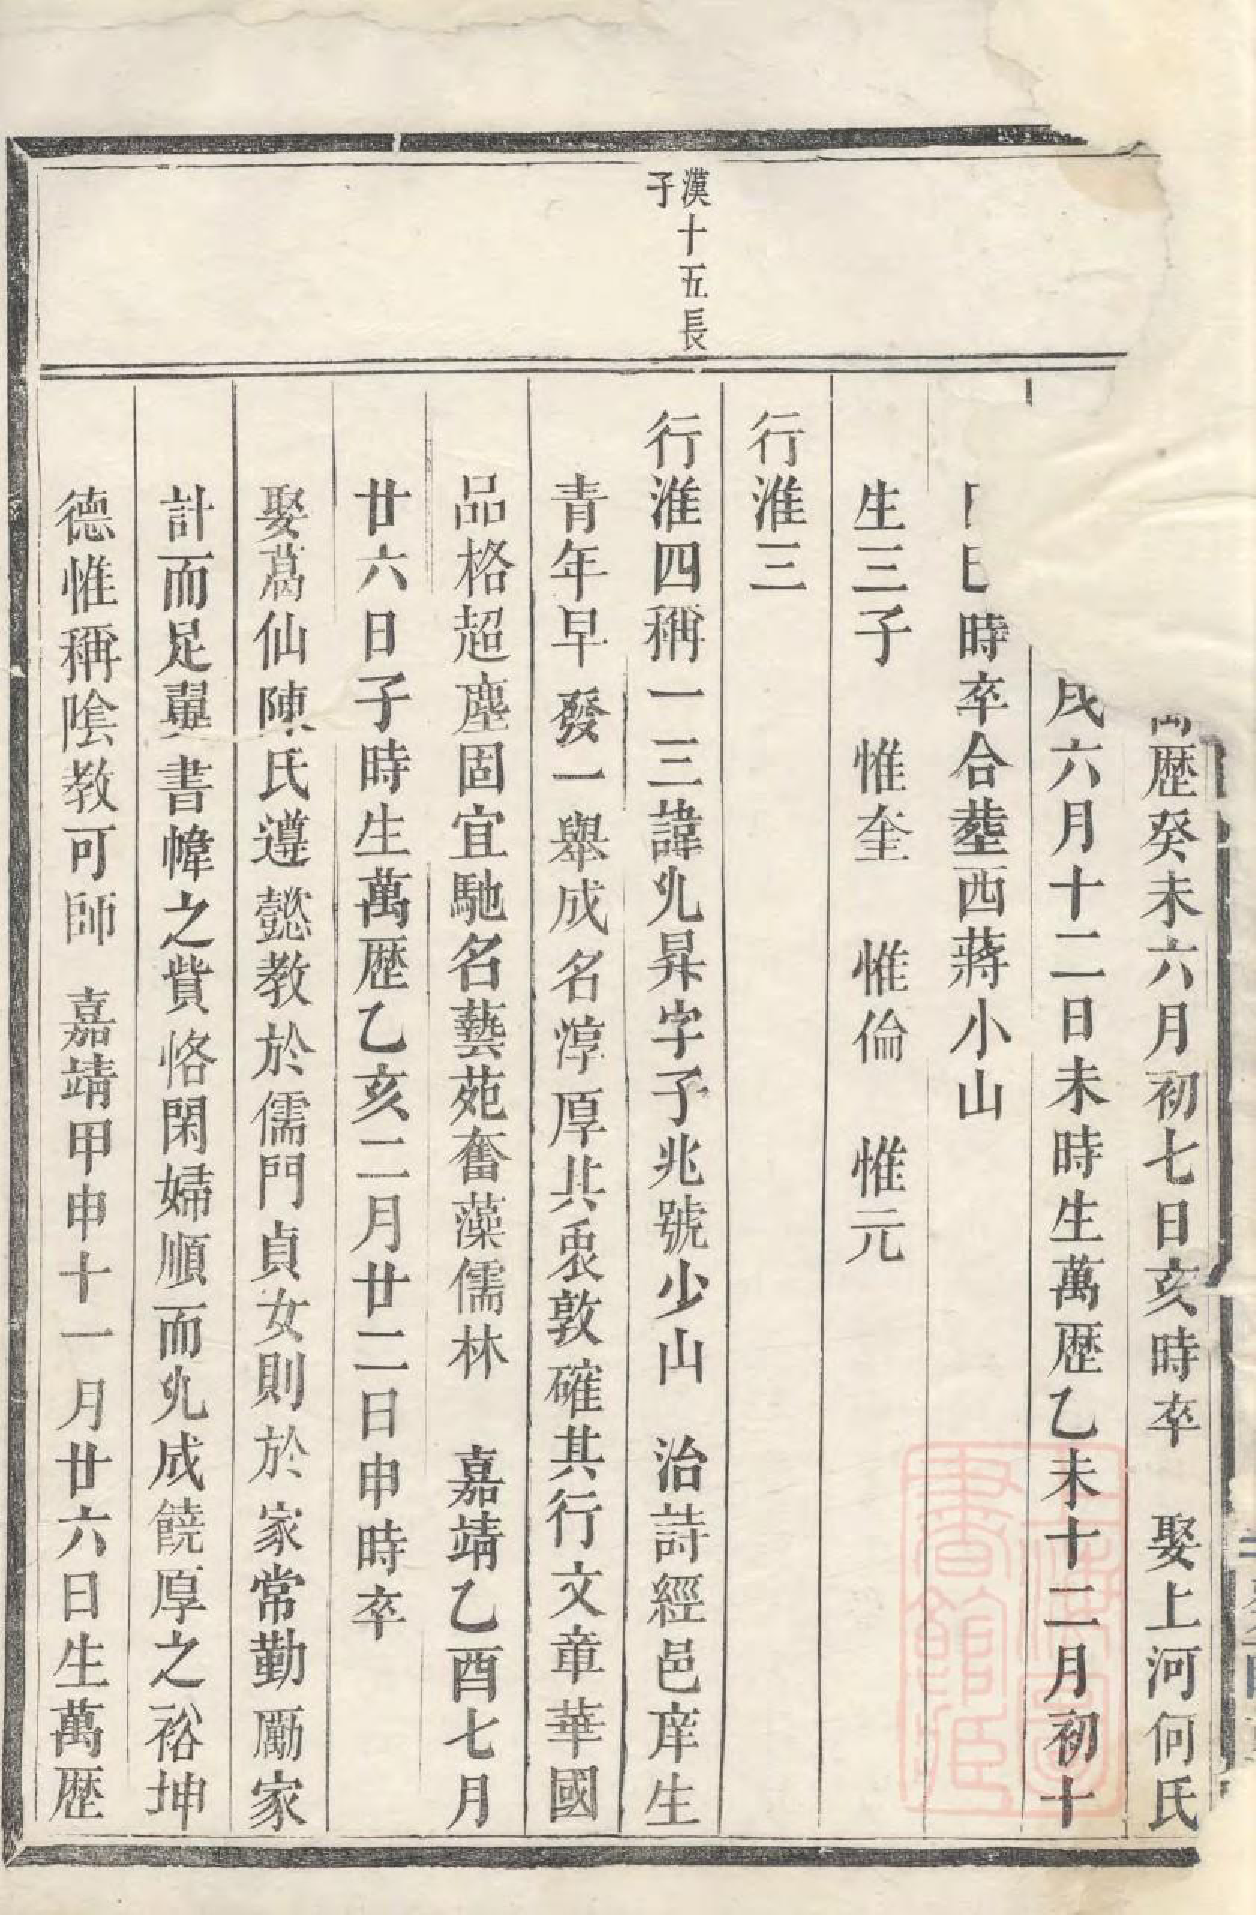 歷癸未六月初七日亥時卒　娶上河何氏
六月十二日未時生萬歷乙未十二月初十
時卒合塟西蔣小山
生三子　惟奎　惟倫　惟元
行淮三
漢十五長
子
行淮四稱一三諱允昇字子兆號少山　治詩經邑庠生
青年早發一舉成名淳厚其衷敦確其行文章華國
品格超塵固宜馳名藝苑奮藻儒林　嘉靖乙酉七月
廿六日子時生萬歷乙亥二月廿二日申時卒
娶葛仙陳氏遵懿教於儒門貞女則於家常勤勵家
計而足翼書幃之貲恪閑婦順而允成饒厚之裕坤
德惟稱陰教可師　嘉靖甲申十一月廿六日生萬歷